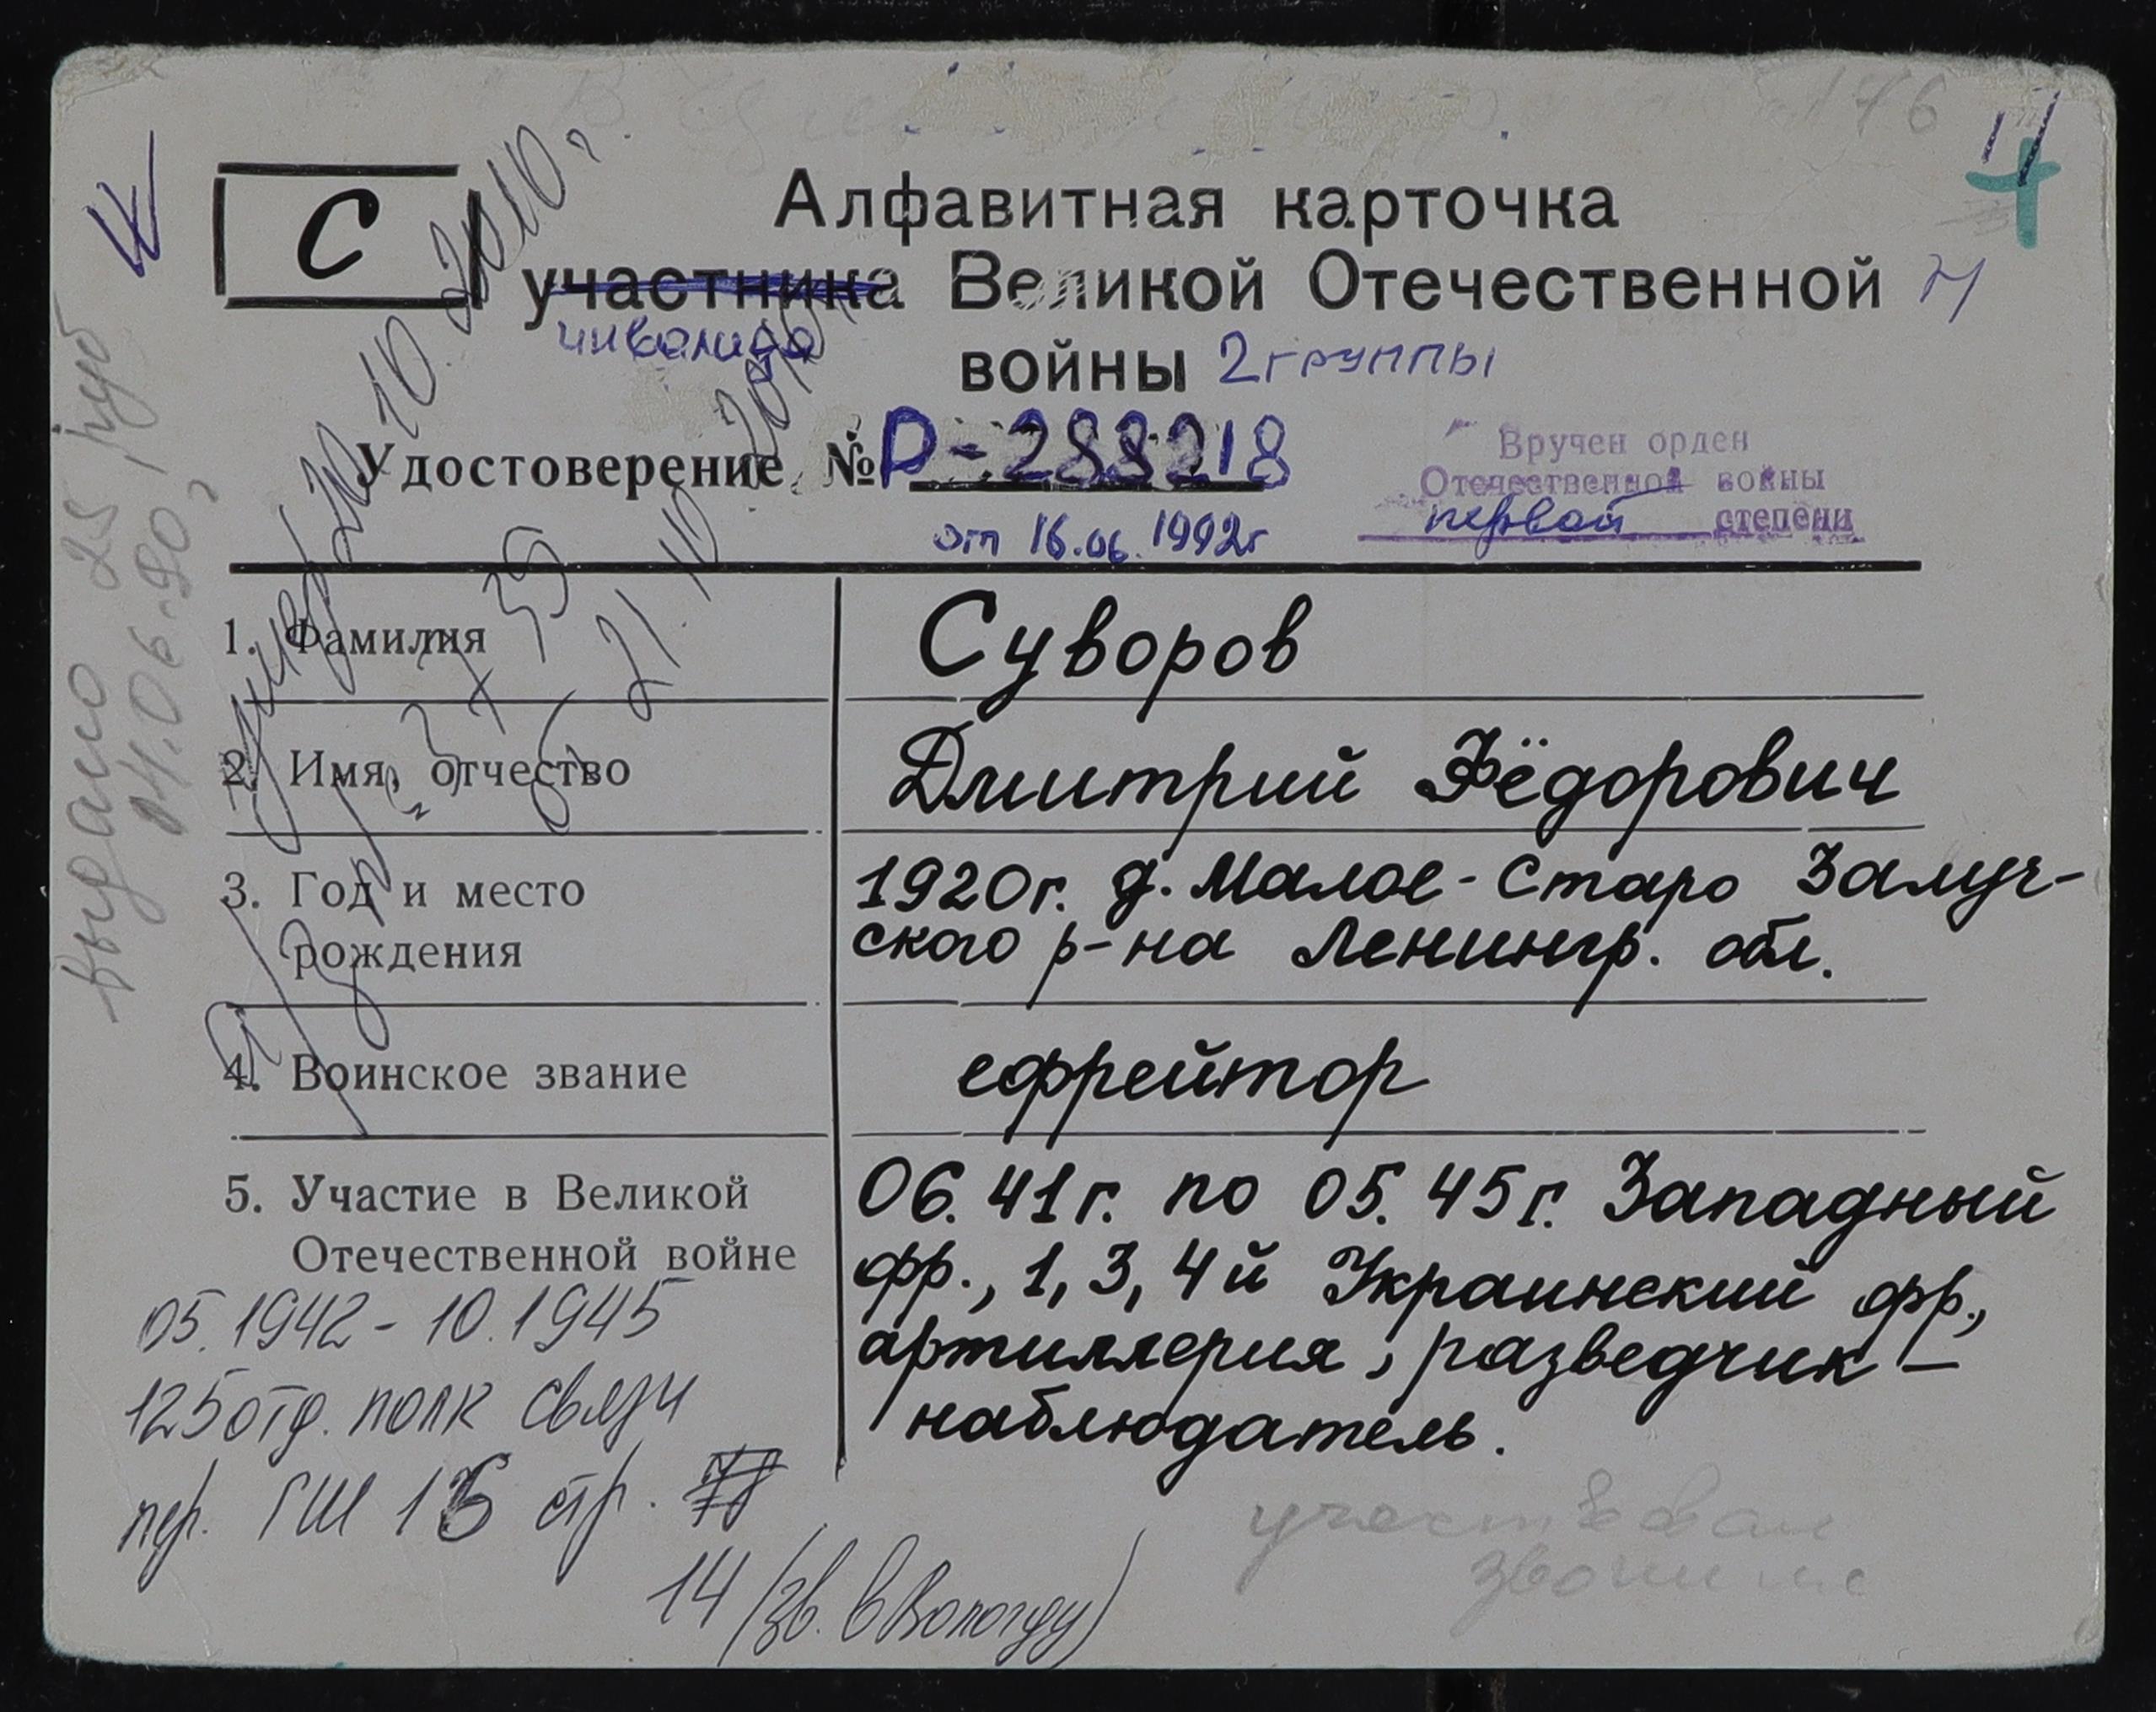 176
С
Алфавитная карточка
участника Великой Отечественной
инвалида
войны 2 группы
Удостоверение № Р-288218
от 16.06.1992г
Вручен орден
Отечественной войны
первой степени
выдано 25 руб
04.06.90г
умер 10.10.2010г.
21.10.2010г
1. Фамилия Суворов
2. Имя, отчество Дмитрий Фёдорович
3. Год и место 1920г. д. Малое-Старо Залуч-
рождения ского р-на Ленингр. обл.
4. Воинское звание ефрейтор
5. Участие в Великой 06.41г. по 05.45г. Западный
Отечественной войне фр., 1, 3, 4й Украинский фр.,
артиллерия, разведчик –
наблюдатель.
05.1942 - 10.1945
125 отд. полк связи
пер. ГШ 16 стр.
14 (зв. в Вологду)
участвовал